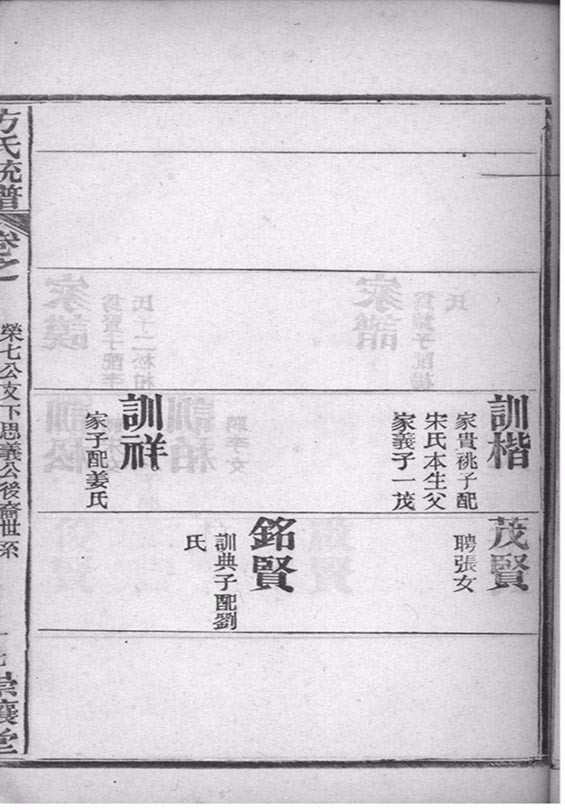 訓楷
家貴祧子配
宋氏本生父
家義子一茂
訓祥
家子配姜氏
茂賢
聘張女
銘賢
訓典子配劉
氏
方氏統譜
卷之
榮七公支下思義公後裔世系